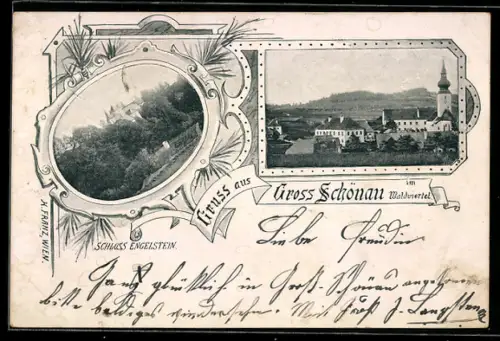 Gruss aus
Gross Schönau im Waldviertel.
SCHLOSS ENGELSTEIN.
H. FRANZ, WIEN.
Liebe Freundin
Ganz glücklich in Groß-Schönau angekommen
bitte baldiges wiedersehen. Mit Gruß J.